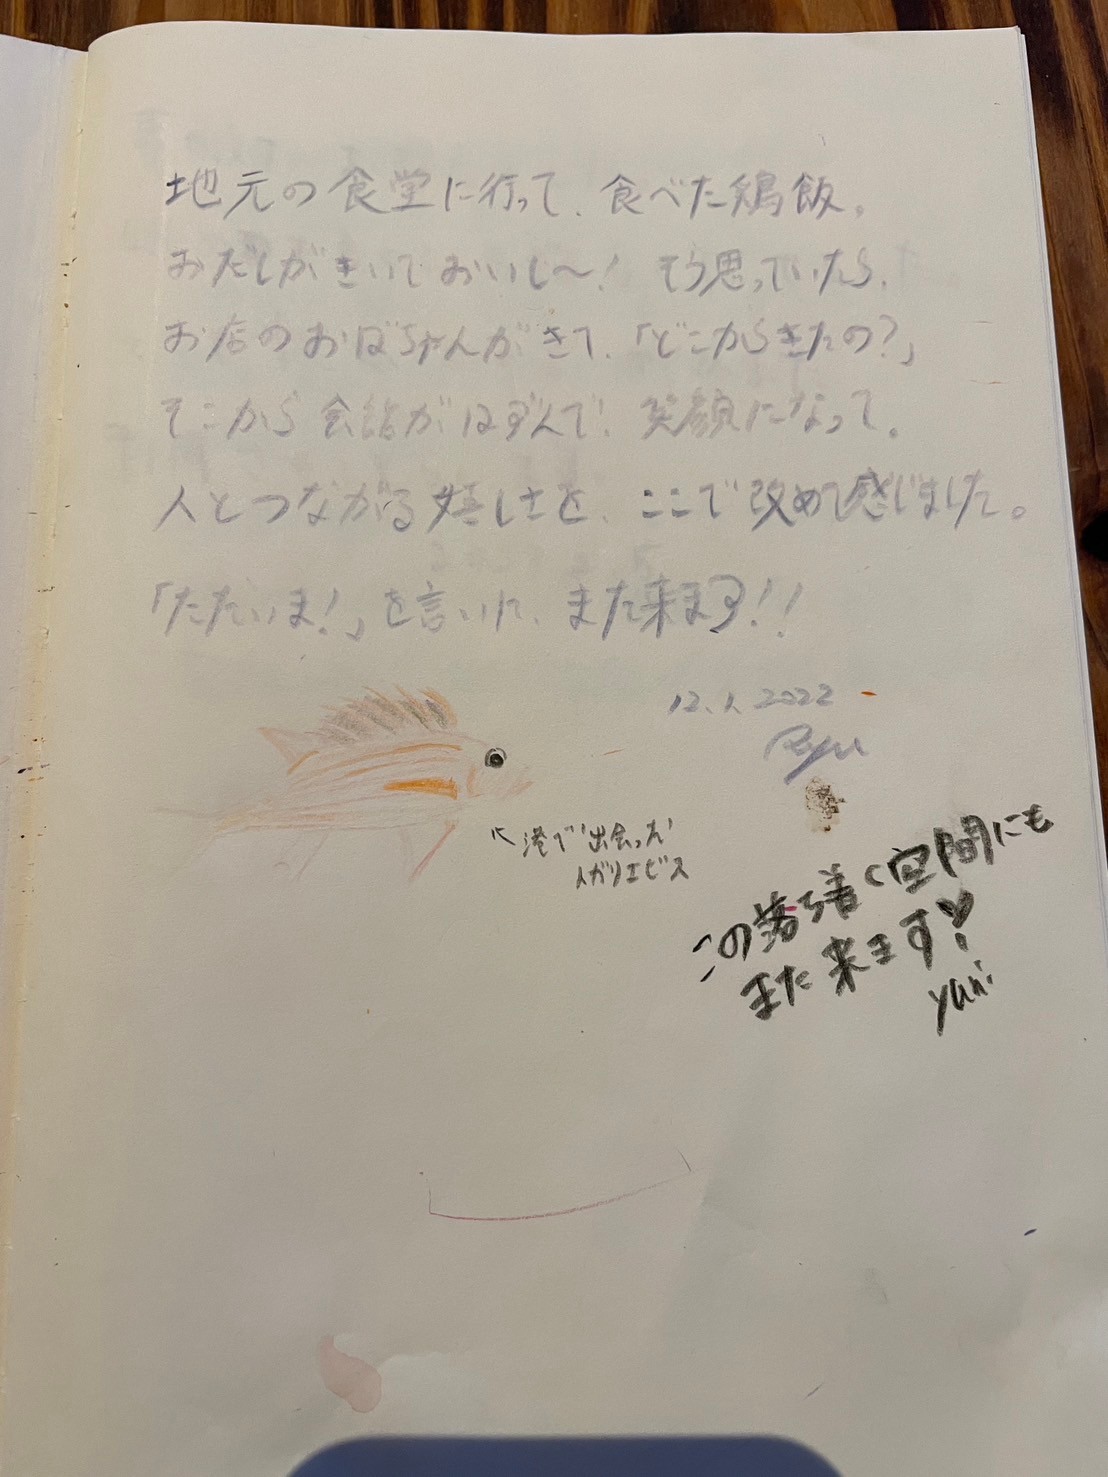 地元の食堂に行って、食べた鶏飯。
おだしがきいておいし〜! そう思っていたら、
お店のおばちゃんがきて、「どこからきたの?」
そこから会話がはずんで、笑顔になって。
人とつながる嬉しさを、ここで改めて感じました。
「ただいま!」を言いに、また来ます!!
12.1.2022
Ryu
港で出会った
メガリエビス
この落ち着く空間にも
また来ます♡
yuri